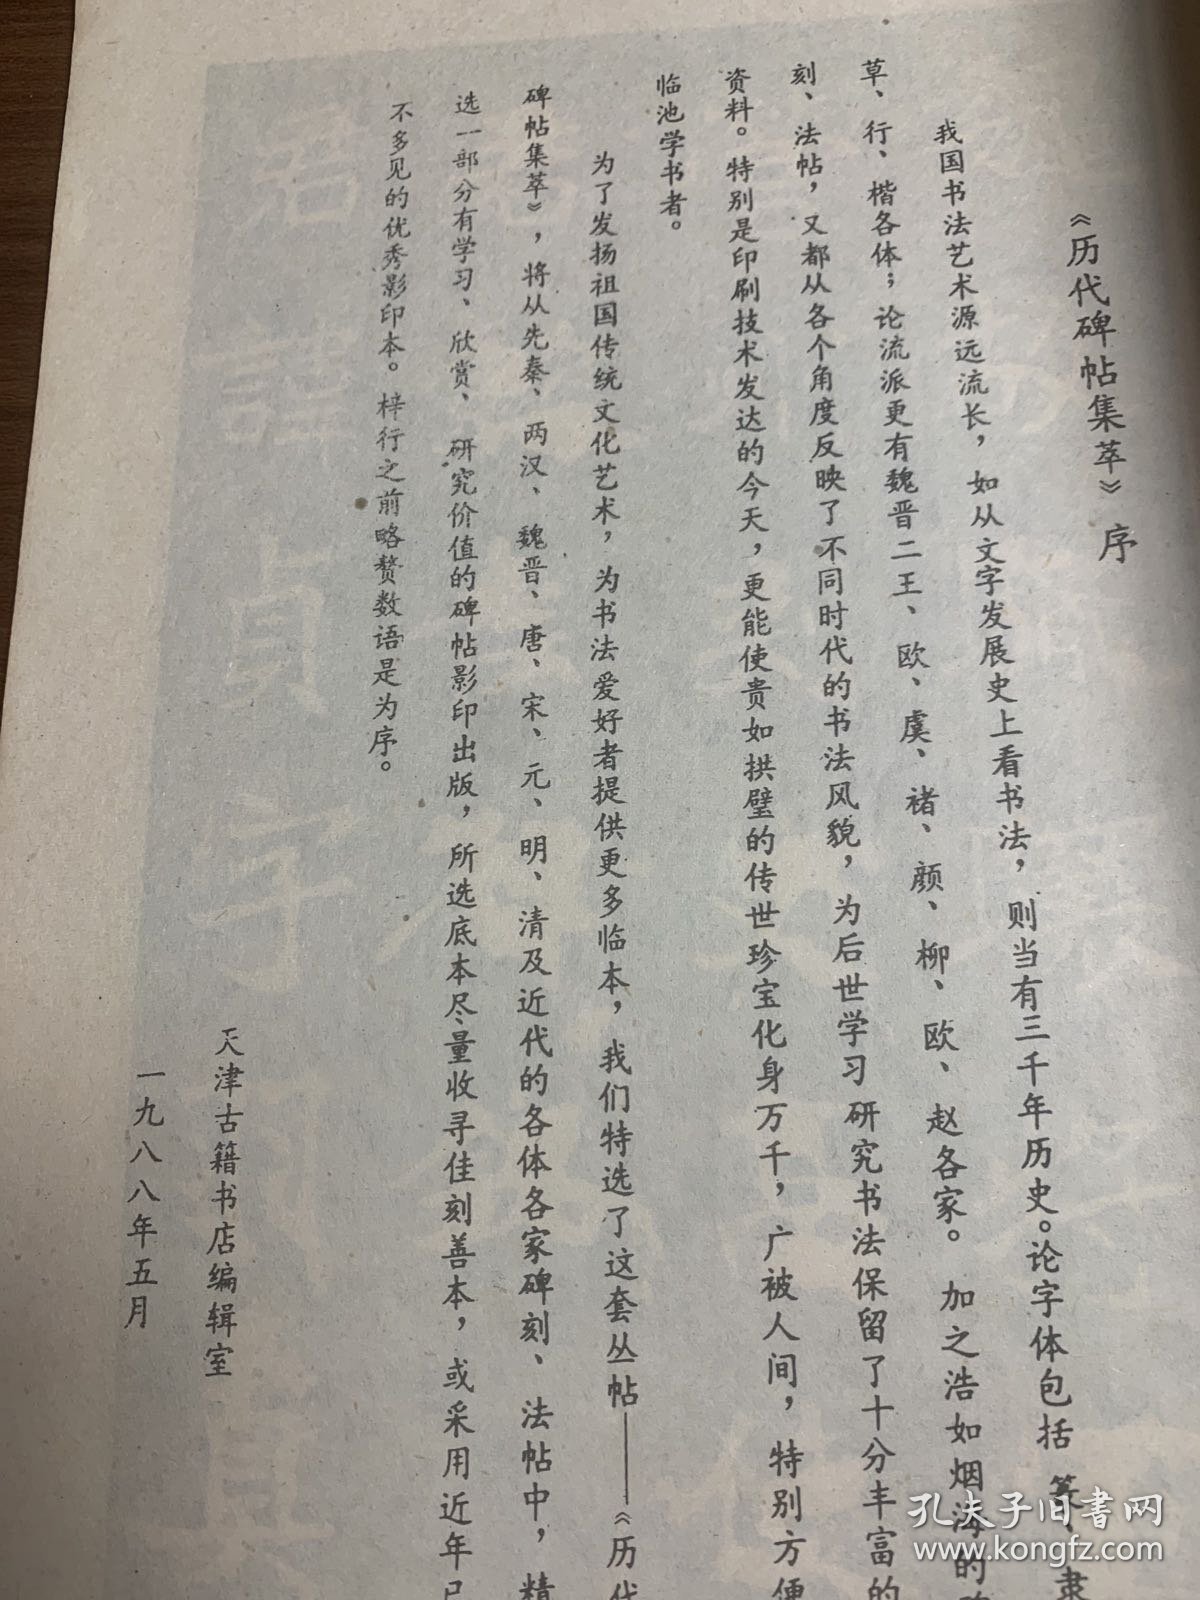 《历代碑帖集萃》序
我国书法艺术源远流长，如从文字发展史上看书法，则当有三千年历史。论字体包括篆、隶
草、行、楷各体；论流派更有魏晋二王、欧、虞、褚、颜、柳、欧、赵各家。加之浩如烟海的
刻、法帖，又都从各个角度反映了不同时代的书法风貌，为后世学习研究书法保留了十分丰富的
资料。特别是印刷技术发达的今天，更能使贵如拱璧的传世珍宝化身万千，广被人间，特别方便
临池学书者。
为了发扬祖国传统文化艺术，为书法爱好者提供更多临本，我们特选了这套丛帖——《历代
碑帖集萃》，将从先秦、两汉、魏晋、唐、宋、元、明、清及近代的各体各家碑刻、法帖中，精
选一部分有学习、欣赏、研究价值的碑帖影印出版，所选底本尽量收寻佳刻善本，或采用近年已
不多见的优秀影印本。梓行之前略赘数语是为序。
天津古籍书店编辑室
一九八八年五月
孔夫子旧书网
www.kongfz.com